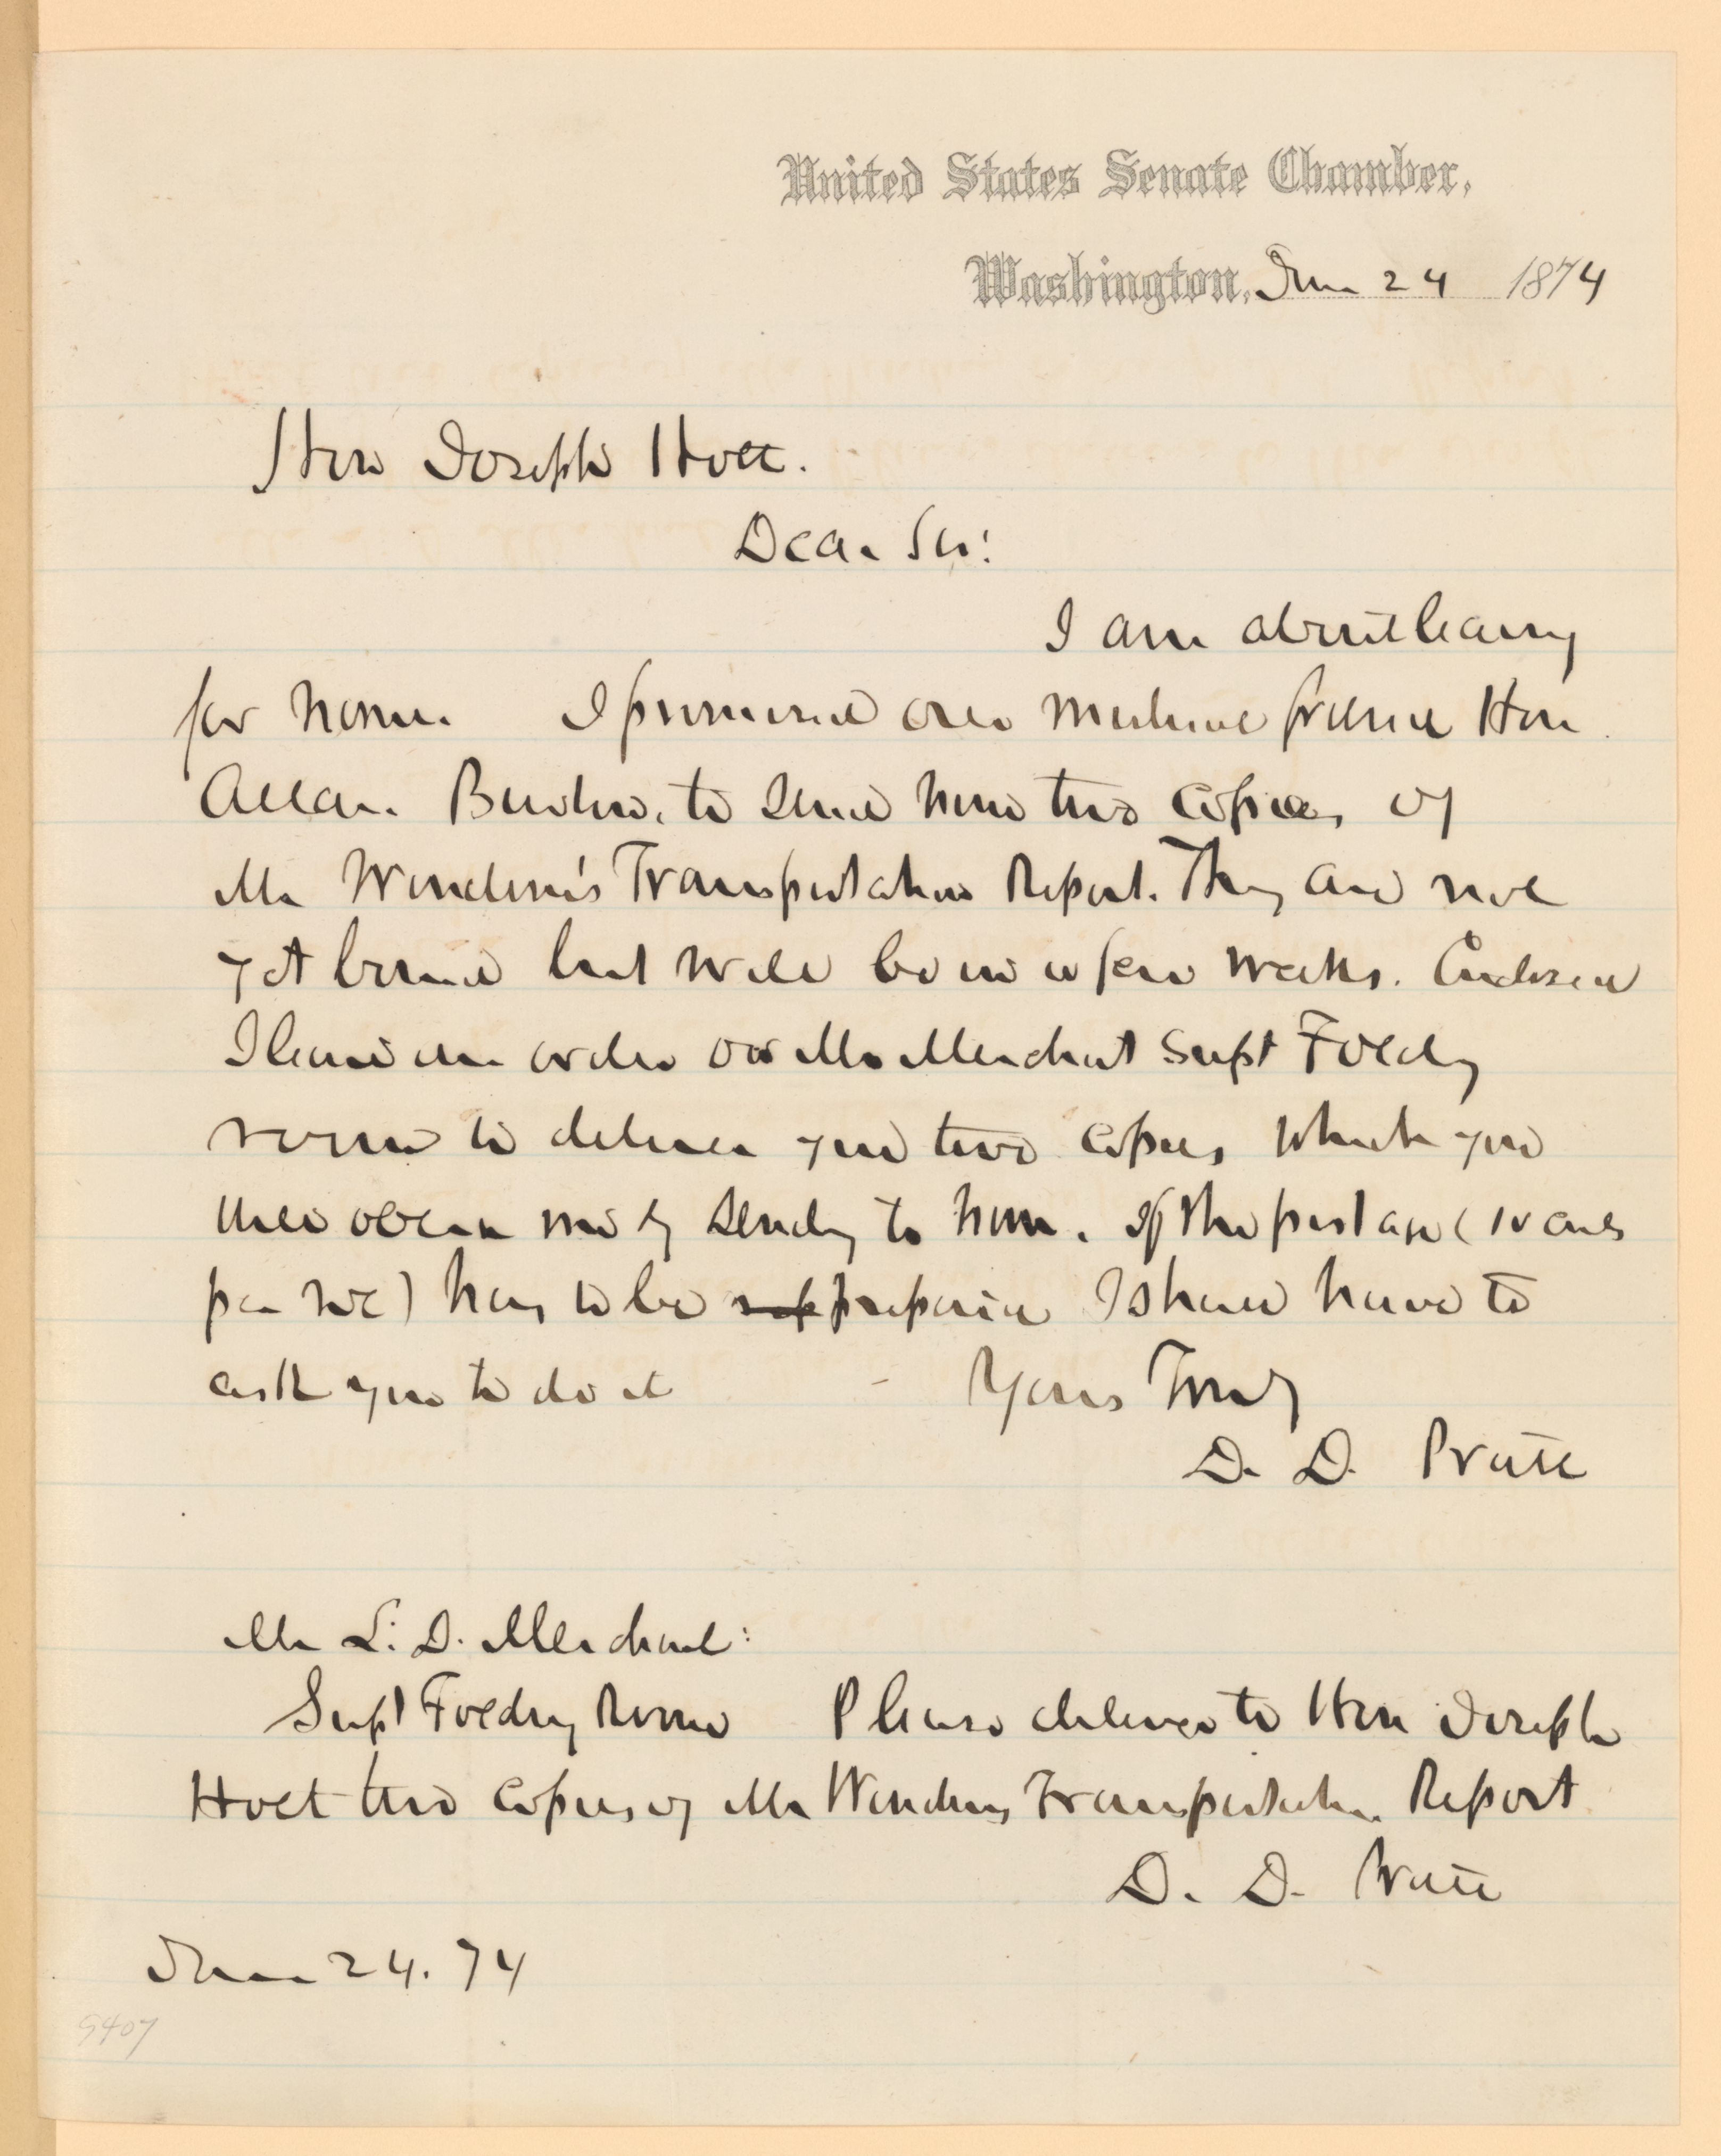 United States Senate Chamber,
Washington, June 24 1874
Hon Joseph Holt.
Dear Sir:
I am about leaving
for home. I promised our mutual friend Hon
Allan to send him two copies of
Mr Windom's Transportation Report. They are not
yet bound but will be in a few weeks. Enclosed
I leave an order on Mr Merchant Supt Foldg
room to deliver you two copies which you
will oblige me by sendg to him. If the postage (10 cents
per vol) has to be prepaid I shall have to
ask you to do it - Yours Truly
D. D. Pratt
Mr L. D. Merchant:
Supt Foldng Room Please deliver to Hon Joseph
Holt two copies of Mr Windoms Transportation Report
D. D. Pratt
June 24. 74
5407